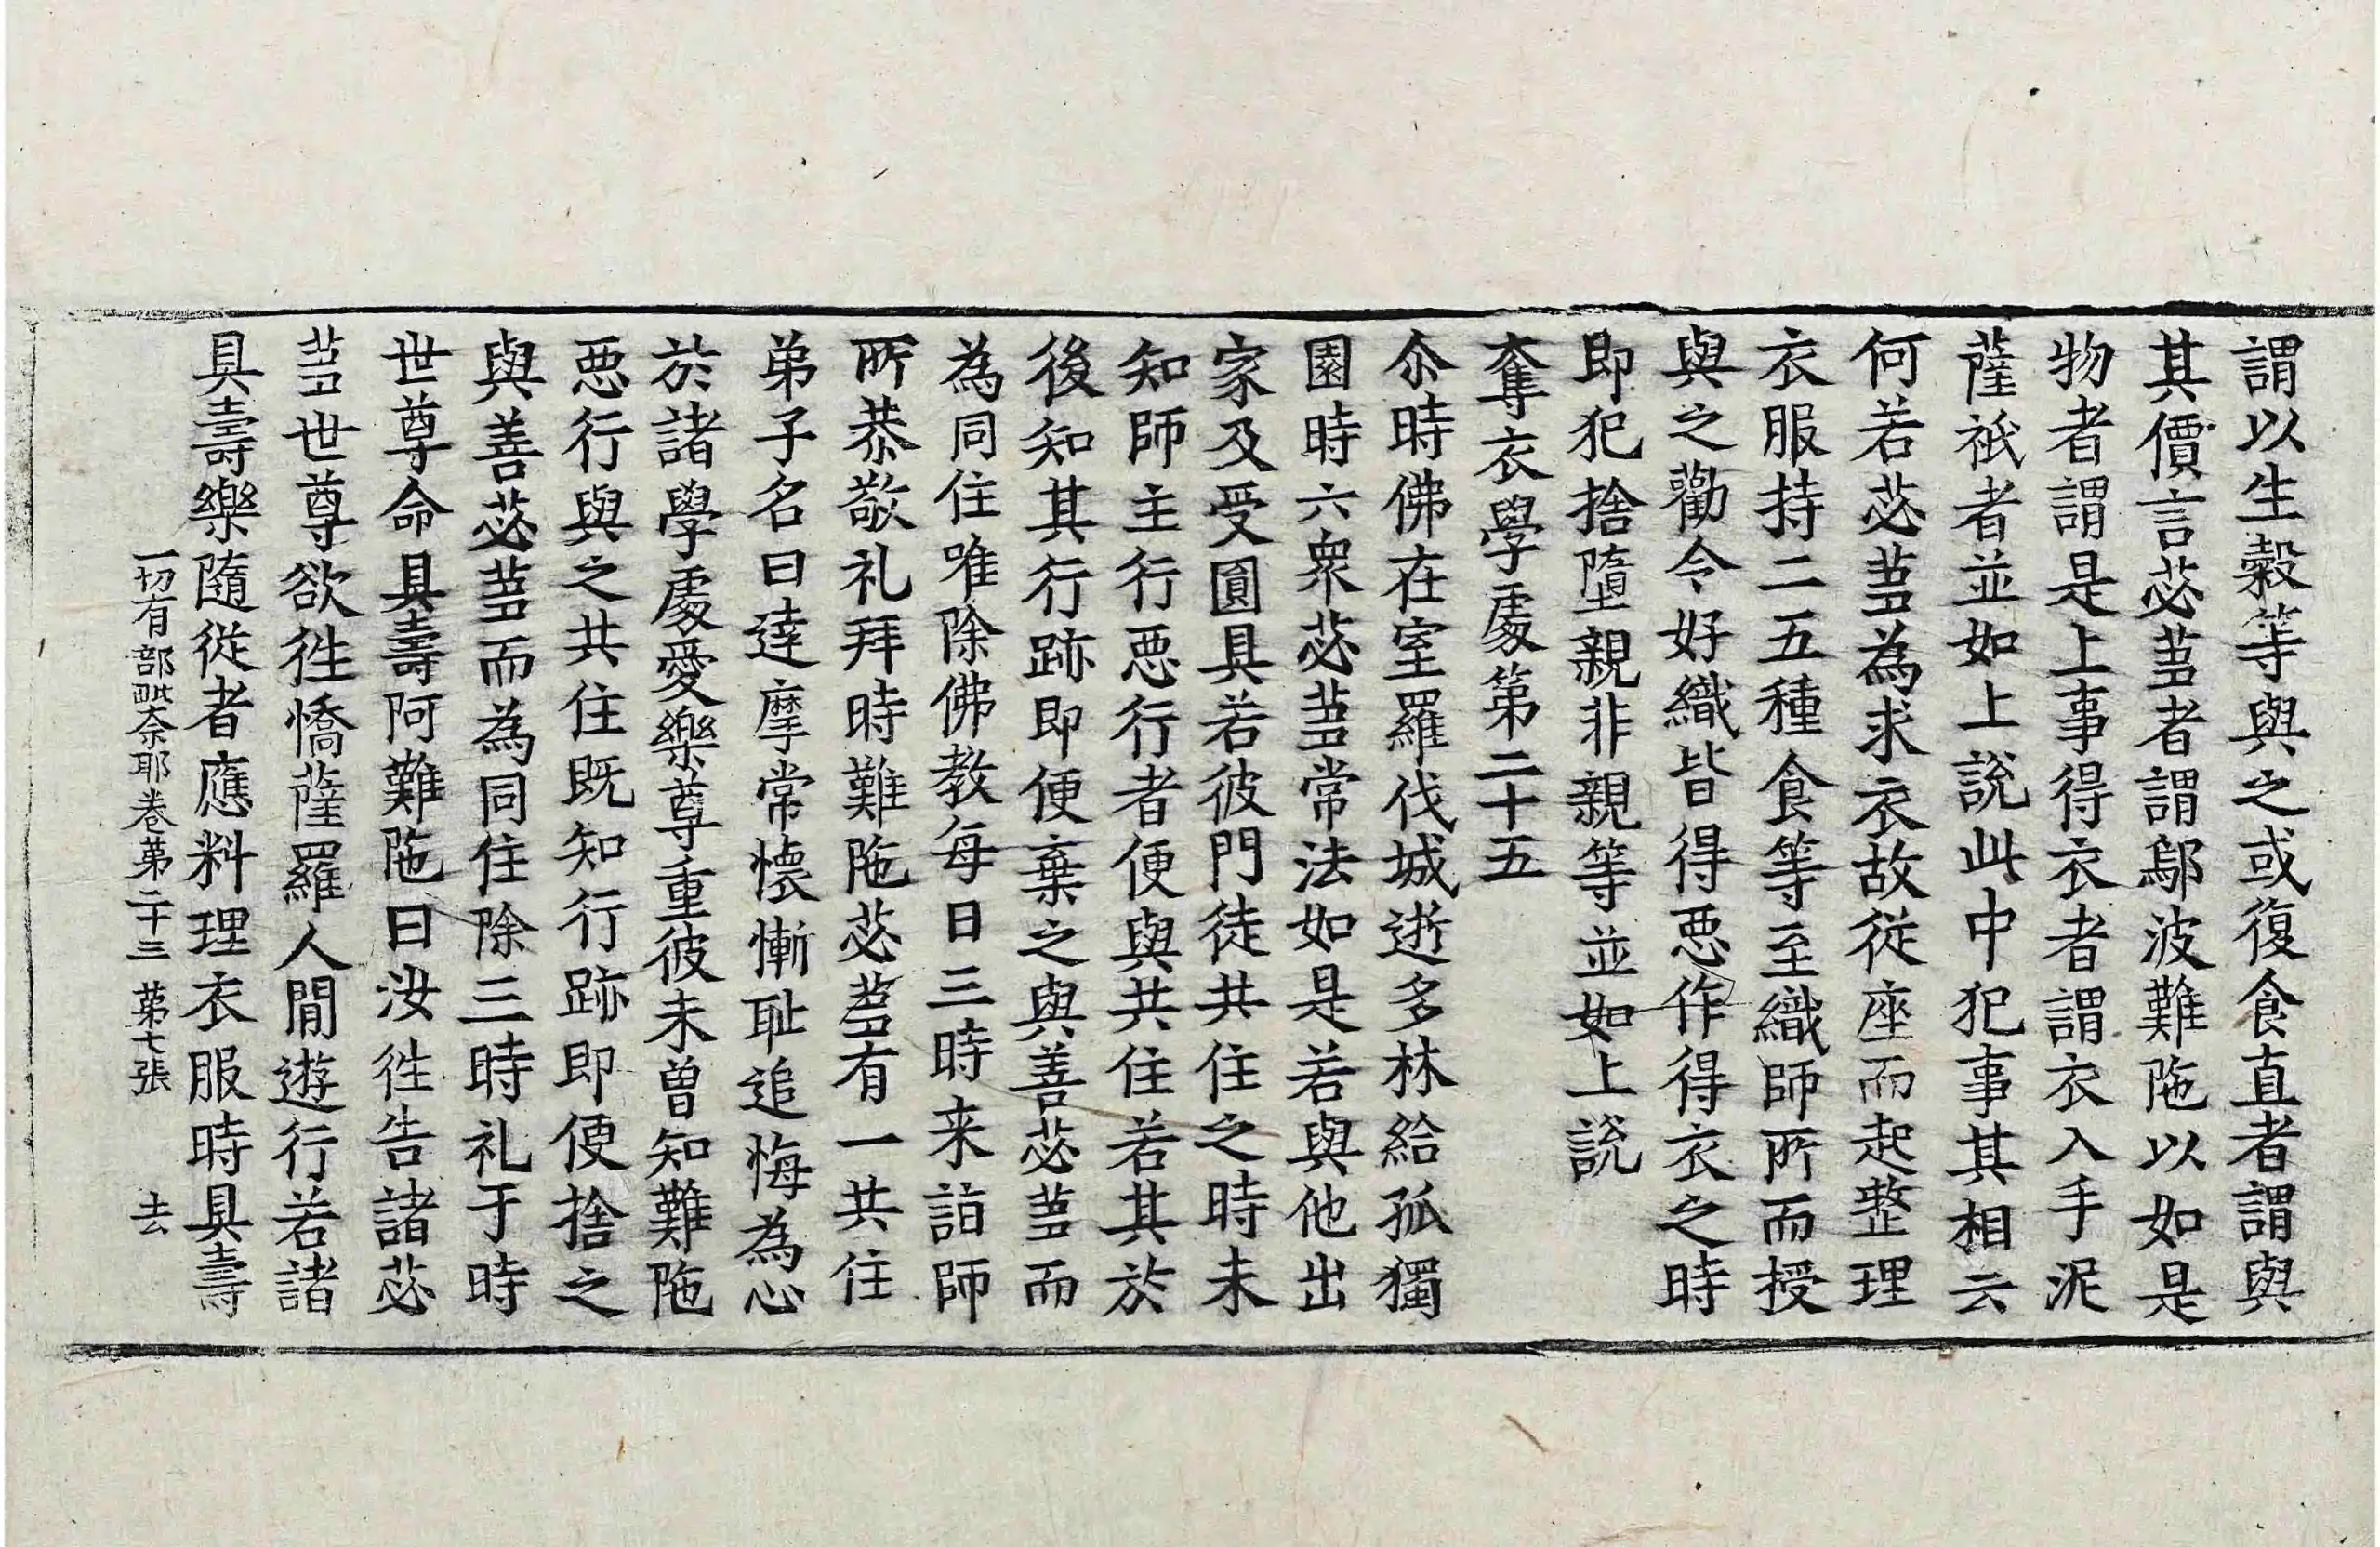 謂以生穀等與之或復食直者謂與
其價言苾蒭者謂鄔波難陁以如是
物者謂是上事得衣者謂衣入手泥
薩祇者並如上說此中犯事其相云
何若苾蒭為求衣故從座而起整理
衣服持二五種食等至織師所而授
與之勸令好織皆得惡作得衣之時
即犯捨墮親非親等並如上說
奪衣學處第二十五
尒時佛在室羅伐城逝多林給孤獨
園時六衆苾蒭常法如是若與他出
家及受圓具若彼門徒共住之時未
知師主行惡行者便與共住若其於
後知其行跡即便棄之與善苾蒭而
為同住唯除佛教每日三時来詣師
所恭敬礼拜時難陁苾蒭有一共住
弟子名曰達摩常懷慚耻追悔為心
於諸學處愛樂尊重彼未曾知難陁
惡行與之共住既知行跡即便捨之
與善苾蒭而為同住除三時礼于時
世尊命具壽阿難陁曰汝徃告諸苾
蒭世尊欲徃憍薩羅人間遊行若諸
具壽樂隨從者應料理衣服時具壽
一切有部毗奈耶卷第二十三 第七張 去